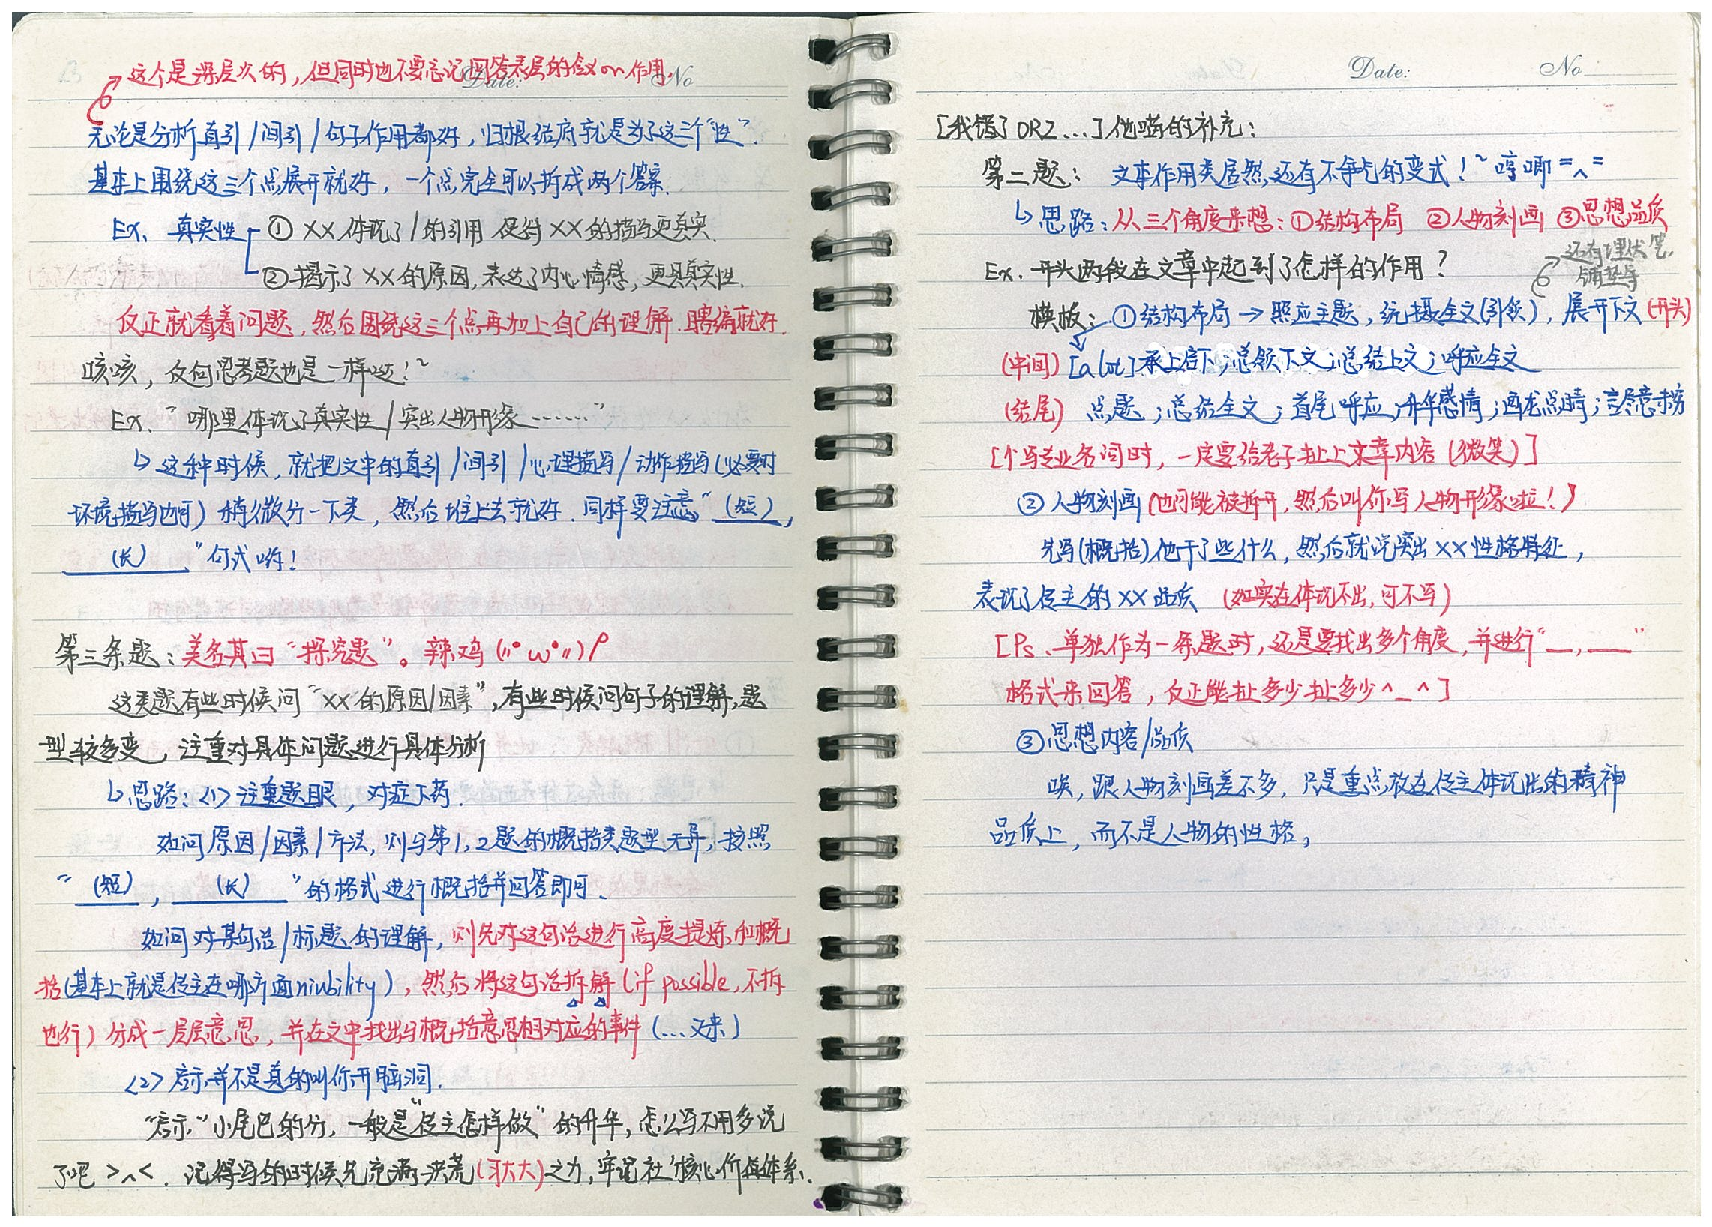 这个是深层次的，但同时也不要忘记回答表层的含义or作用。
Date: No
无论是分析直引/间引/句子作用都好，归根结底就是为了这三个"性"。
基本上围绕这三个点展开就好，一个点完全可以拆成两个答案.
Ex. 真实性 ① XX 体现了/的引用 使得 XX 的描写更真实.
② 揭示了XX的原因,表达了内心情感，更具真实性.
反正就看着问题，然后围绕这三个点再加上自己的理解.瞎编就好.
咳咳，反向思考题也是一样哒！~
Ex. "哪里体现了真实性/突出人物形象……"
↳ 这种时候，就把文中的直引/间引/心理描写/动作描写(必要时
环境描写也可)稍微分一下类，然后堆上去就好.同样要注意"(短),
(长)"句式哟!
第三条题：美名其曰"探究题"。辣鸡 (〃°ω°〃)
这类题有些时候问"XX的原因/因素",有些时候问句子的理解,题
型较多变，注重对具体问题进行具体分析
↳思路：<1> 注重题眼，对症下药.
如问原因/因素/方法，则与第1,2题的概括类题型无异，按照
"(短), (长)"的格式进行概括并回答即可.
如问对某句话/标题的理解，则先对这句话进行高度提炼和概
括(基本上就是传主在哪方面niubility)，然后将这句话拆解(if possible,不拆
也行)分成一层层意思，并在文中找出与概括意思相对应的事件(…又来)
<2> 启示并不是真的叫你开脑洞.
"启示"小尾巴的分，一般是"传主怎样做"的升华，怎么写不用多说
了吧 >^<. 记得写的时候先充满洪荒(习大大)之力,牢记社"核心价值体系.
Date: No
[我错了ORZ…]他喵的补充：
第二题： 文本作用类居然还有不争气的变式！~哼唧 =^=
↳思路：从三个角度来想：①结构布局 ②人物刻画 ③思想品质
还有埋伏笔,
铺垫等
Ex. 开头两段在文章中起到了怎样的作用？
模板：①结构布局→照应主题，统摄全文(引领)，展开下文(开头)
(中间) [a lot] 承上启下;总领下文;总结上文;呼应全文
(结尾) 点题；总结全文；首尾呼应;升华感情;画龙点睛;言尽意接
[个写专业名词时，一定要给老子扯上文章内容(微笑)]
②人物刻画(也可能被拆开，然后叫你写人物形象啦！)
先写(概括)他干了些什么，然后就说突出XX性格特征，
表现了传主的XX品质 (如实在体现不出,可不写)
[Ps、单独作为一条题时，还是要找出多个角度，并进行"__,___"
格式来回答，反正能扯多少扯多少^_^]
③思想内容/品质
唉，跟人物刻画差不多，只是重点放在传主体现出的精神
品质上，而不是人物的性格。